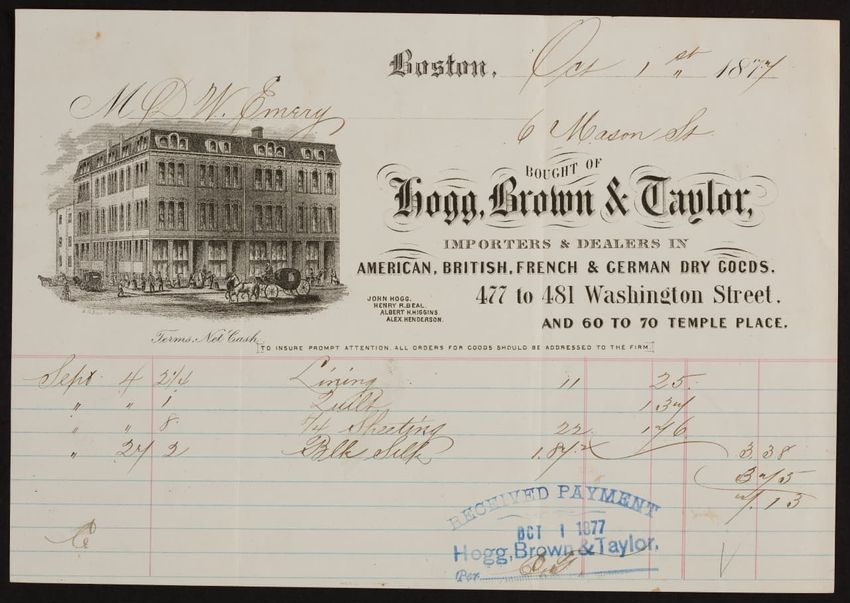 Boston, Oct 1st 1877
M D W. Emery
6 Mason St
BOUGHT OF
Hogg, Brown & Taylor,
IMPORTERS & DEALERS IN
AMERICAN, BRITISH, FRENCH & GERMAN DRY GOODS.
477 to 481 Washington Street.
JOHN HOGG.
HENRY R. BEAL.
ALBERT H. HIGGINS.
ALEX. HENDERSON.
AND 60 TO 70 TEMPLE PLACE.
Terms, Net Cash.
TO INSURE PROMPT ATTENTION, ALL ORDERS FOR GOODS SHOULD BE ADDRESSED TO THE FIRM.
Sept 4 2 1/4 Lining 11 25
" " 1 Quilt 1 37
" " 8 4/4 Sheeting 22 1 76
" 27 2 Blk Silk 1.87 1/2 3 38
3 75
7.13
RECEIVED PAYMENT
OCT 1 1877
Hogg, Brown & Taylor.
Per